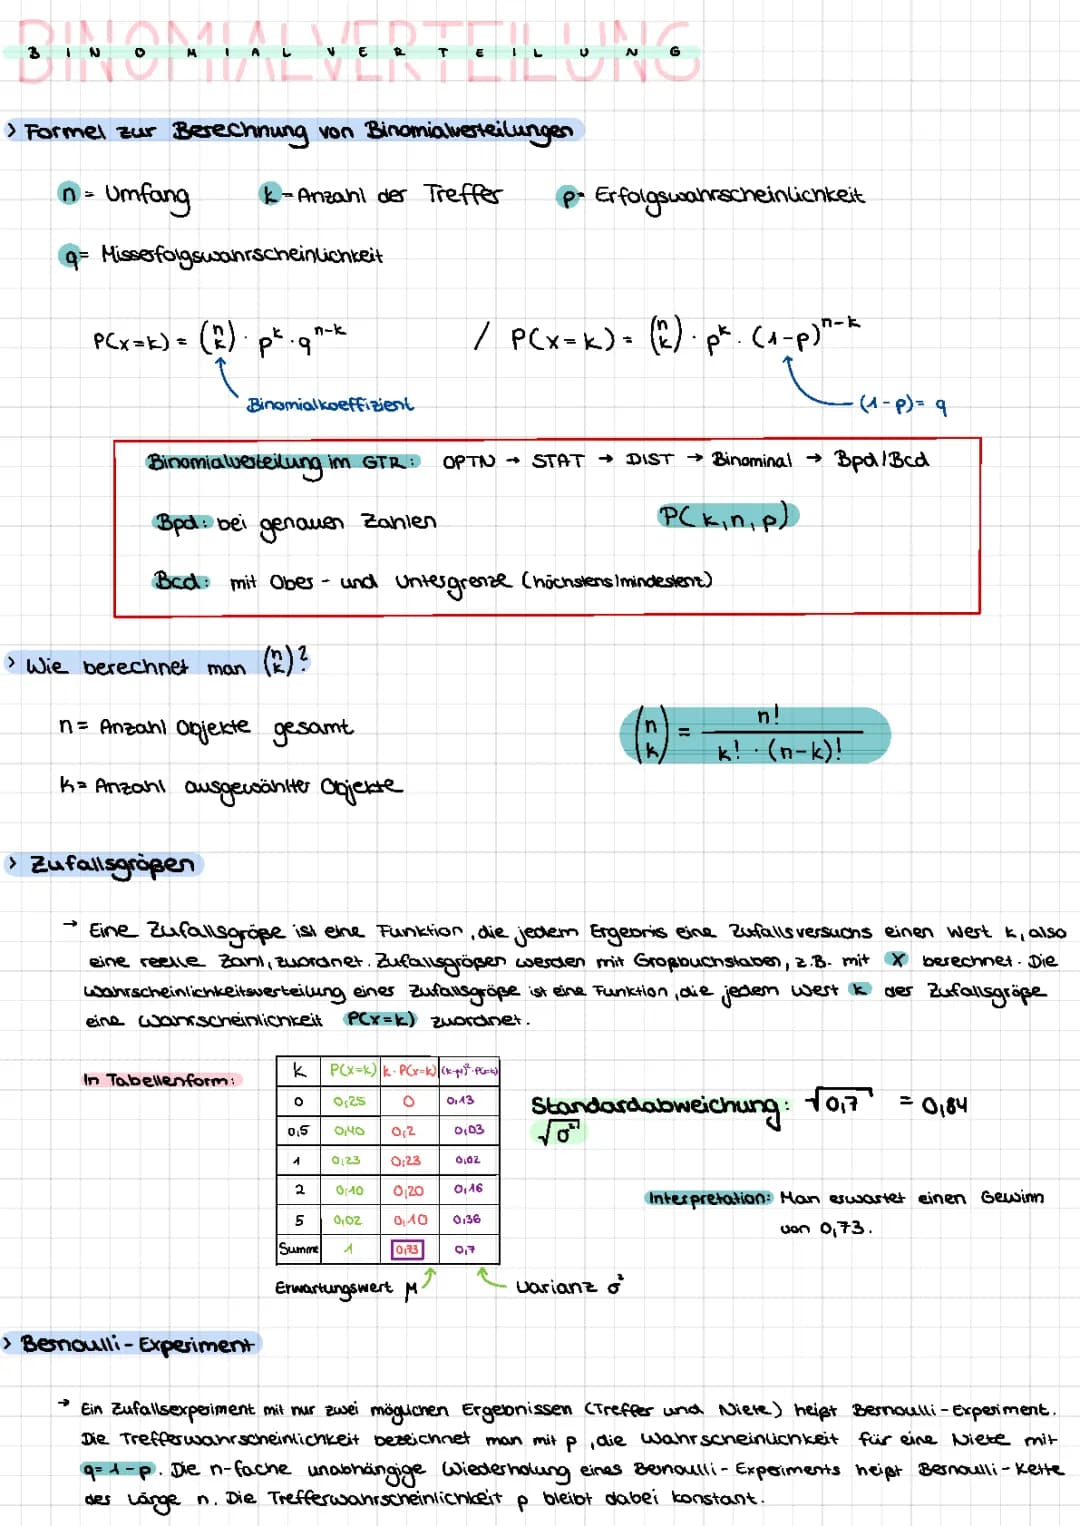 BINOMIALVERTEILUNG
BINOMIALVERTEILUNG
> Formel zur Berechnung von Binomialverteilungen
n = Umfang k = Anzahl der Treffer p = Erfolgswahrscheinlichkeit
q = Misserfolgswahrscheinlichkeit
P(x=k) = (n k) · p^k · q^n-k / P(x=k) = (n k) · p^k · (1-p)^n-k
Binomialkoeffizient (1-p) = q
Binomialverteilung im GTR: OPTN → STAT → DIST → Binominal → Bpd/Bcd
Bpd: bei genauen Zahlen P(k,n,p)
Bcd: mit Ober- und Untergrenze (höchstens/mindestens)
> Wie berechnet man (n k)?
n = Anzahl Objekte gesamt (n k) = n! / k! · (n-k)!
k = Anzahl ausgewählter Objekte
> Zufallsgrößen
→ Eine Zufallsgröße ist eine Funktion, die jedem Ergebnis eine Zufallsversuchs einen Wert k, also
eine reelle Zahl, zuordnet. Zufallsgrößen werden mit Großbuchstaben, z.B. mit X berechnet. Die
Wahrscheinlichkeitsverteilung einer Zufallsgröße ist eine Funktion, die jedem Wert k der Zufallsgröße
eine Wahrscheinlichkeit P(x=k) zuordnet.
In Tabellenform:
k P(x=k) k·P(x=k) (k-μ)²·P(x=k)
0 0,25 0 0,13
0,5 0,40 0,2 0,03
1 0,23 0,23 0,02
2 0,10 0,20 0,16
5 0,02 0,10 0,36
Summe 1 0,73 0,7
Erwartungswert μ Varianz σ²
Standardabweichung: √0,7 = 0,84
√σ²
Interpretation: Man erwartet einen Gewinn
von 0,73.
> Bernoulli-Experiment
→ Ein Zufallsexperiment mit nur zwei möglichen Ergebnissen (Treffer und Niete) heißt Bernoulli-Experiment.
Die Trefferwahrscheinlichkeit bezeichnet man mit p, die Wahrscheinlichkeit für eine Niete mit
q=1-p. Die n-fache unabhängige Wiederholung eines Bernoulli-Experiments heißt Bernoulli-Kette
der Länge n. Die Trefferwahrscheinlichkeit p bleibt dabei konstant.